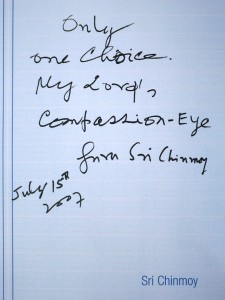 Only
one Choice.
My Lord's
Compassion-Eye
from Sri Chinmoy
July 15th
2007
Sri Chinmoy